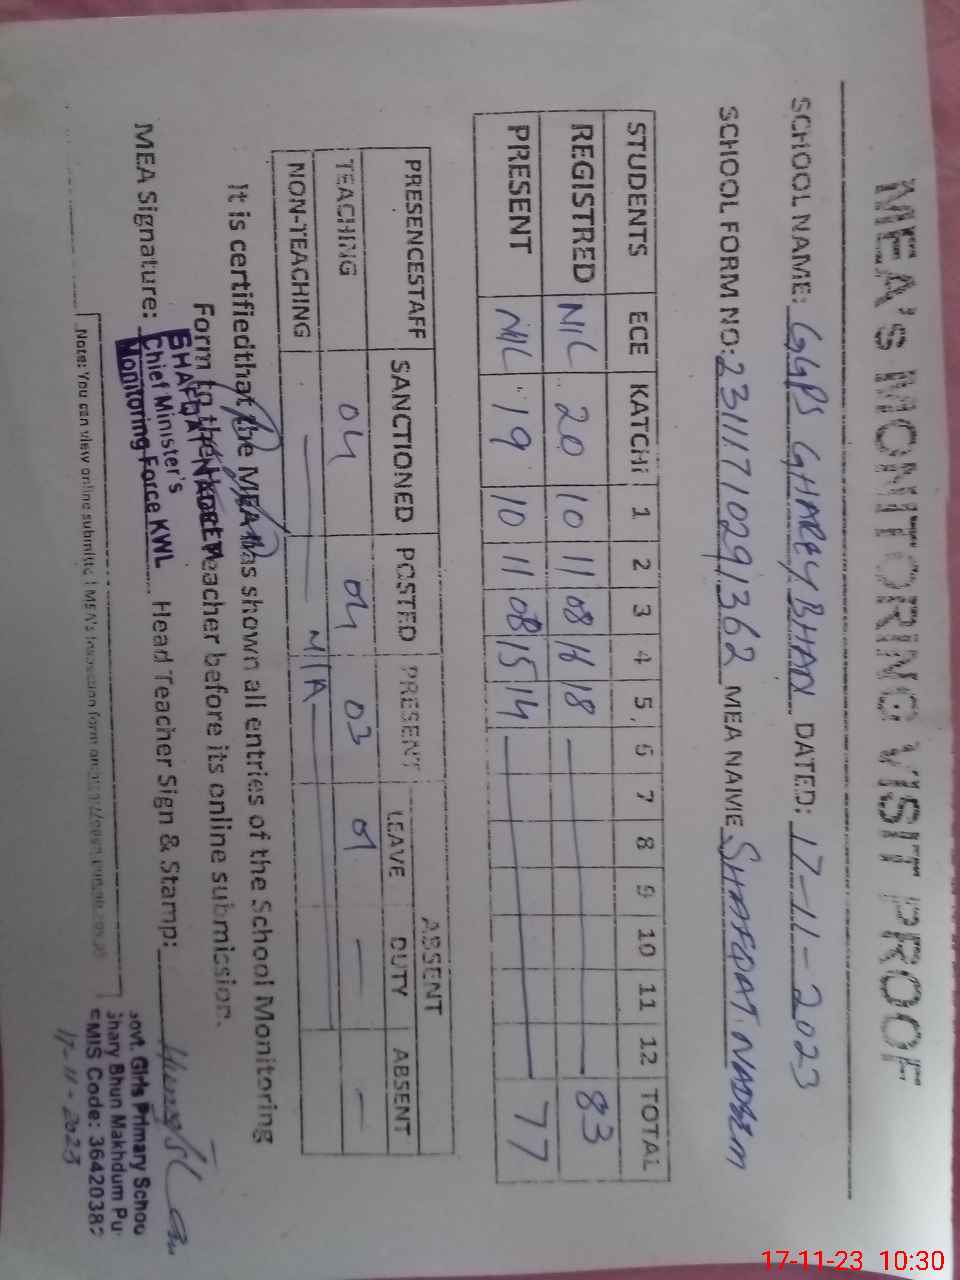 MEA's MONITORING VISIT PROOF
SCHOOL NAME: GGPS GHAREY BHAN DATED: 17-11-2023
SCHOOL FORM NO: 23111710291362 MEA NAME SHAFQAT NADEEM
STUDENTS ECE KATCHI 1 2 3 4 5 6 7 8 9 10 11 12 TOTAL
REGISTRED NIL 20 10 11 08 16 18 83
PRESENT NIL 19 10 11 08 15 14 77
PRESENCESTAFF SANCTIONED POSTED PRESENT ABSENT
LEAVE DUTY ABSENT
TEACHING 04 04 03 01 — —
NON-TEACHING — N/A —
It is certifiedthat the MEA has shown all entries of the School Monitoring
Form to the Head Teacher before its online submission.
MEA Signature: Head Teacher Sign & Stamp:
SHAFQAT NADEEM
Chief Minister's
Monitoring Force KWL
Govt. Girls Primary Schoo
Ghary Bhun Makhdum Pu
EMIS Code: 3642038
17-11-2023
Note: You can view online submitted MEA's Inspection form on
17-11-23 10:30